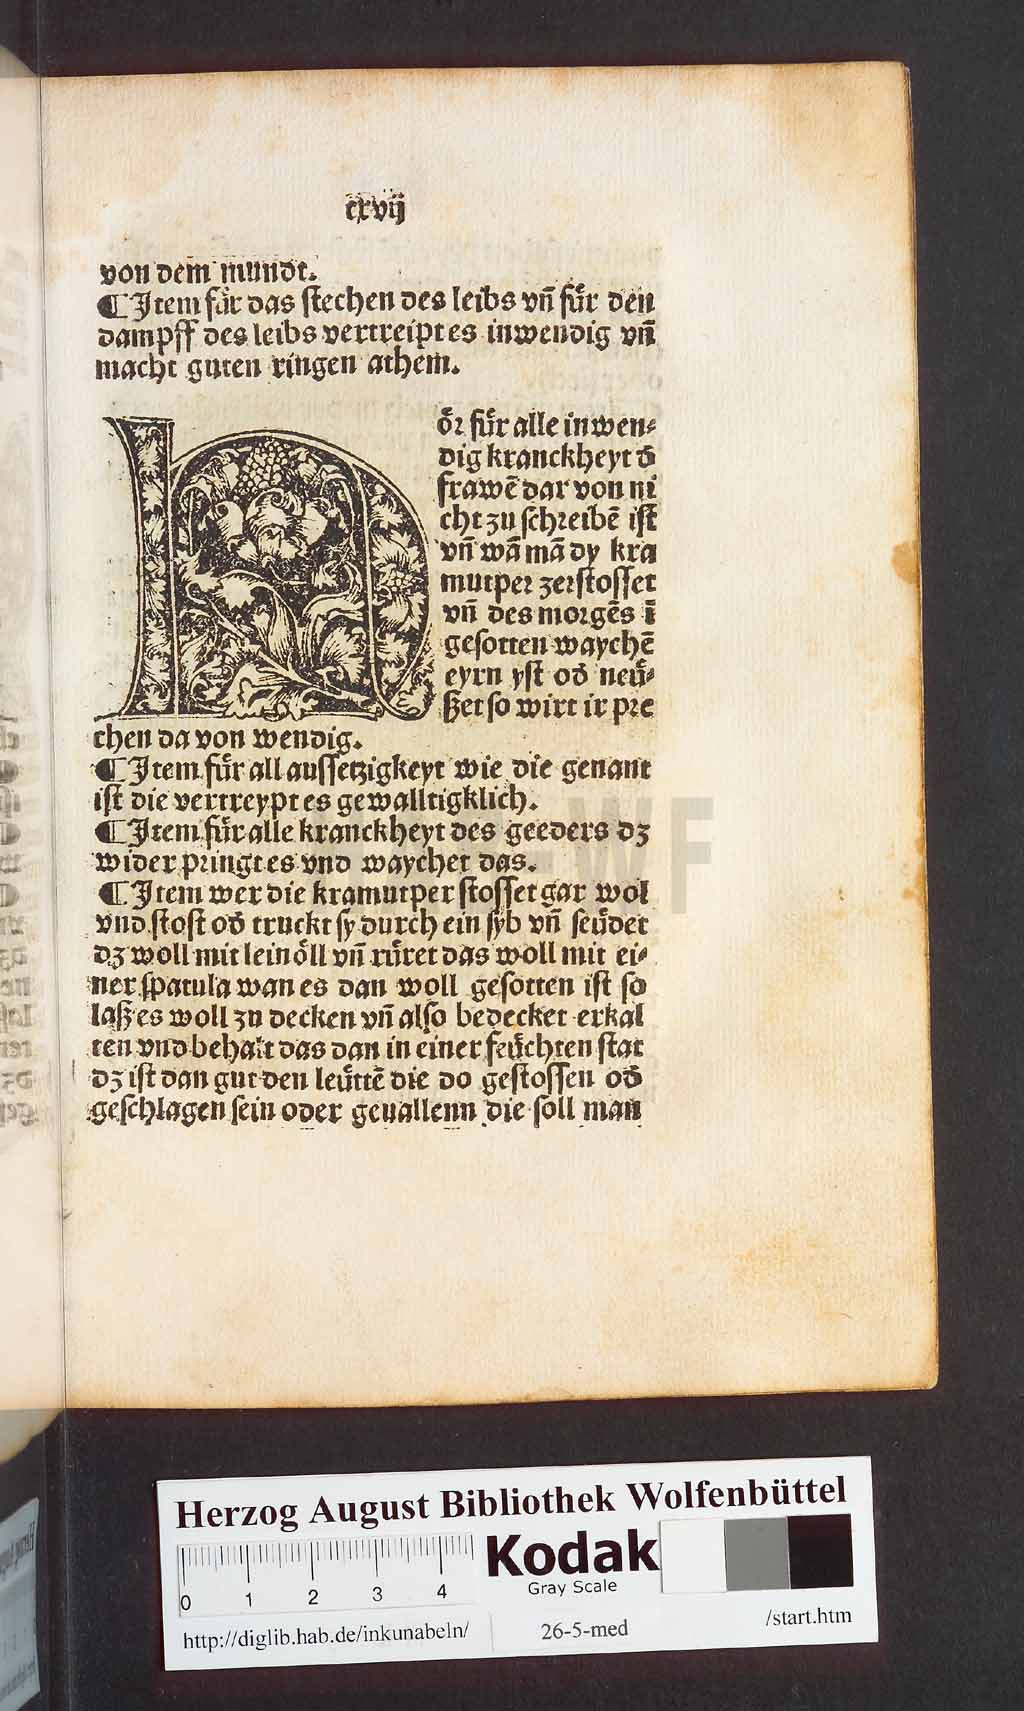 cxvij
von dem mundt.
¶ Item für das stechen des leibs vn̄ für den
dampff des leibs vertreipt es inwendig vn̄
macht guten ringen athem.
Hör für alle inwen⸗
dig kranckheyt d̄
frawē dar von ni
cht zu schreibē ist
vn̄ wā mā dy kra
mutper zerstosset
vn̄ des morgēs ī
gesotten waychē
eyrn yst od̄ neü⸗
ßet so wirt ir pre
chen da von wendig.
¶ Item für all aussetzigkeyt wie die genant
ist die vertreypt es gewalltigklich.
¶ Item für alle kranckheyt des geeders dz
wider pringt es vnd waychet das.
¶ Item wer die kramutper stosset gar wol
vnd stost od̄ truckt sy durch ein syb vn̄ seüdet
dz woll mit lein öll vn̄ rüret das woll mit ei⸗
ner spatula wan es dan woll gesotten ist so
laß es woll zu decken vn̄ also bedecket erkal
ten vnd behalt das dan in einer feüchten stat
dz ist dan gut den leüttē die do gestossen od̄
geschlagen sein oder geuallenn die soll man
Herzog August Bibliothek Wolfenbüttel
0 1 2 3 4
Kodak
Gray Scale
http://diglib.hab.de/inkunabeln/ 26-5-med /start.htm